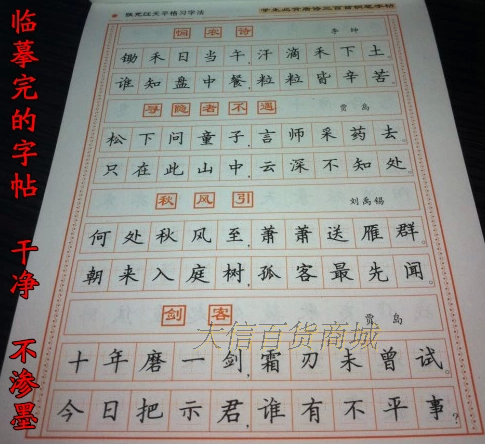 临摹完的字帖 干净 不渗墨
学生必背唐诗三百首钢笔字帖
悯农诗 李绅
锄禾日当午,汗滴禾下土。
谁知盘中餐,粒粒皆辛苦。
寻隐者不遇 贾岛
松下问童子,言师采药去。
只在此山中,云深不知处。
秋风引 刘禹锡
何处秋风至,萧萧送雁群。
朝来入庭树,孤客最先闻。
剑客 贾岛
大信百货商城
十年磨一剑,霜刃未曾试。
今日把示君,谁有不平事?